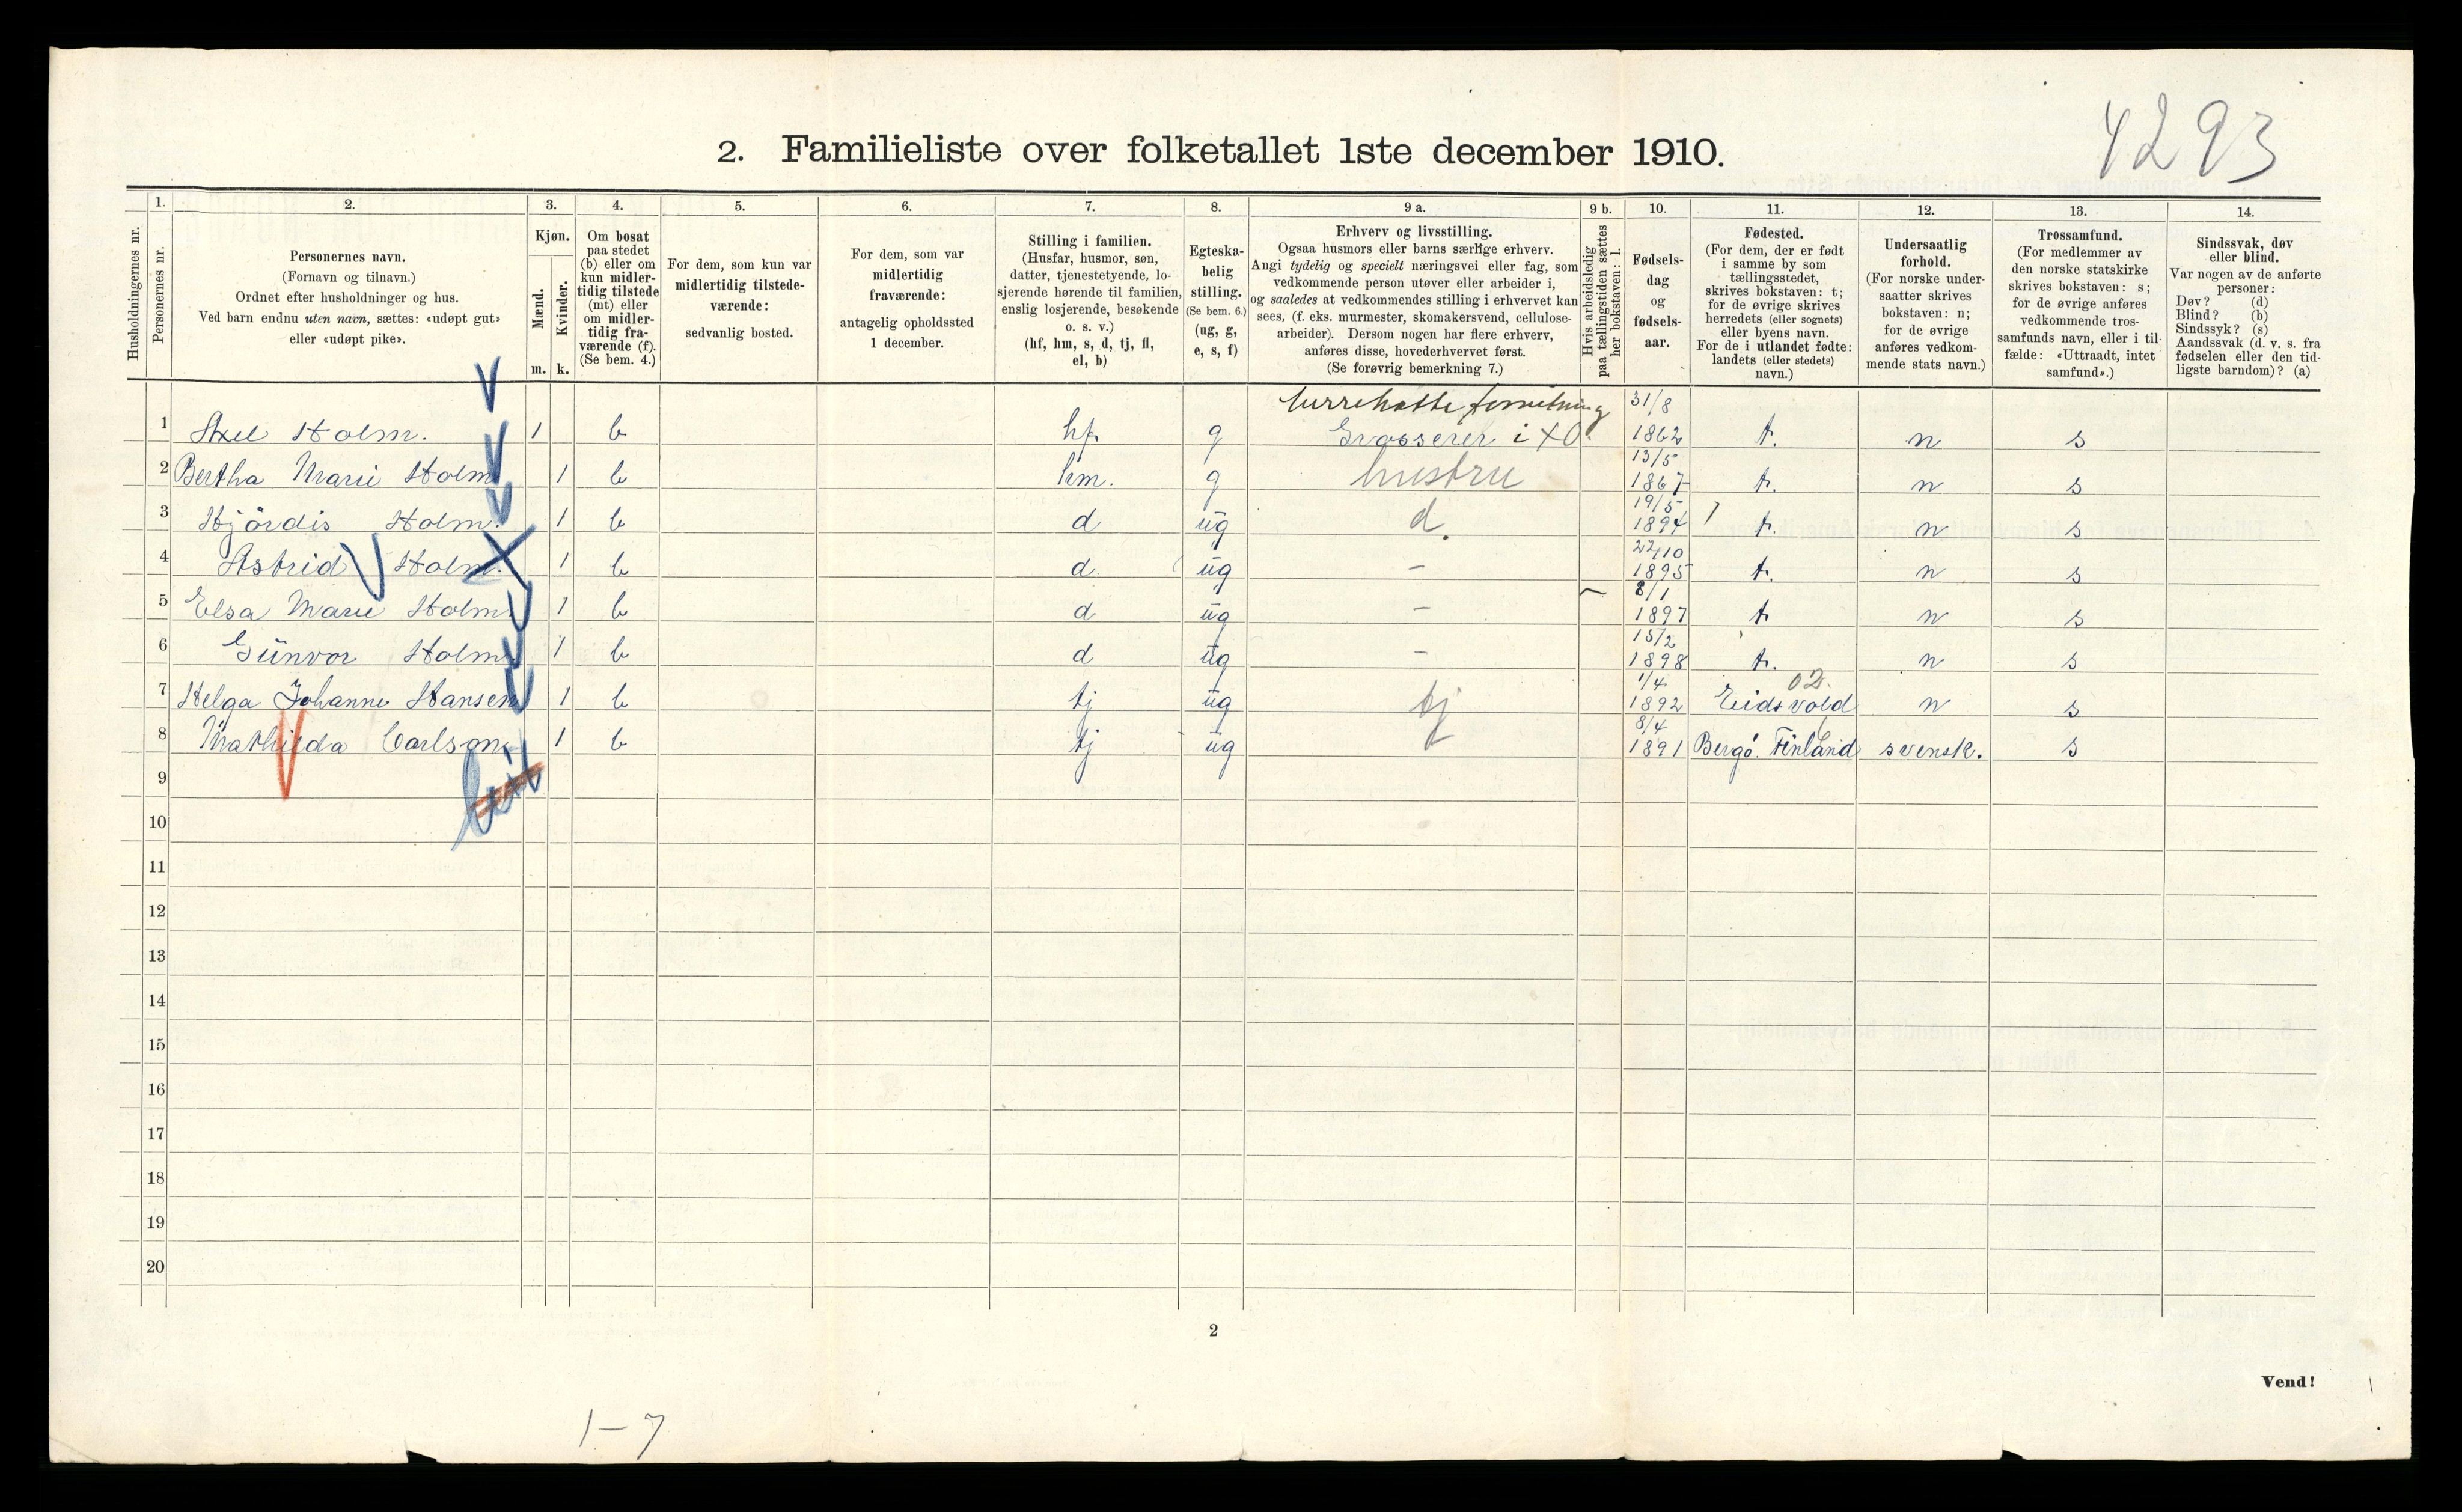 4293
2. Familieliste over folketallet 1ste december 1910.
1. 2. 3. 4. 5. 6. 7. 8. 9 a. 9 b. 10. 11. 12. 13. 14.
Husholdningernes nr.
Personernes nr.
Personernes navn.
(Fornavn og tilnavn.)
Ordnet efter husholdninger og hus.
Ved barn endnu uten navn, sættes: «udøpt gut»
eller «udøpt pike».
Kjøn.
Mænd.
Kvinder.
m. k.
Om bosat
paa stedet
(b) eller om
kun midler-
tidig tilstede
(mt) eller
om midler-
tidig fra-
værende (f).
(Se bem. 4.)
For dem, som kun var
midlertidig tilstede-
værende:
sedvanlig bosted.
For dem, som var
midlertidig
fraværende:
antagelig opholdssted
1 december.
Stilling i familien.
(Husfar, husmor, søn,
datter, tjenestetyende, lo-
sjerende hørende til familien,
enslig losjerende, besøkende
o. s. v.)
(hf, hm, s, d, tj, fl,
el, b)
Egteska-
belig
stilling.
(Se bem. 6.)
(ug, g,
e, s, f)
Erhverv og livsstilling.
Ogsaa husmors eller barns særlige erhverv.
Angi tydelig og specielt næringsvei eller fag, som
vedkommende person utøver eller arbeider i,
og saaledes at vedkommendes stilling i erhvervet kan
sees, (f. eks. murmester, skomakersvend, cellulose-
arbeider). Dersom nogen har flere erhverv,
anføres disse, hovederhvervet først.
(Se forøvrig bemerkning 7.)
Hvis arbeidsledig
paa tællingstiden sættes
her bokstaven: l.
Fødsels-
dag
og
fødsels-
aar.
Fødested.
(For dem, der er født
i samme by som
tællingsstedet,
skrives bokstaven: t;
for de øvrige skrives
herredets (eller sognets)
eller byens navn.
For de i utlandet fødte:
landets (eller stedets)
navn.)
Undersaatlig
forhold.
(For norske under-
saatter skrives
bokstaven: n;
for de øvrige
anføres vedkom-
mende stats navn.)
Trossamfund.
(For medlemmer av
den norske statskirke
skrives bokstaven: s;
for de øvrige anføres
vedkommende tros-
samfunds navn, eller i til-
fælde: «Uttraadt, intet
samfund».)
Sindssvak, døv
eller blind.
Var nogen av de anførte
personer:
Døv? (d)
Blind? (b)
Sindssyk? (s)
Aandssvak (d. v. s. fra
fødselen eller den tid-
ligste barndom)? (a)
31/8
1 Axel Holm. 1 b hf. g Grosserer i 1862 t. n s
13/5
2 Bertha Marie Holm 1 b hm. g hustru 1867 t. n s
19/5
3 Hjördis Holm. 1 b d ug d. 1894 t. n s
22/10
4 Astrid Holm. 1 b d. ug – 1895 t. n s
8/1
5 Elsa Marie Holm 1 b d ug – 1897 t n s
15/2
6 Gunvor Holm. 1 b d ug – 1898 t. n s
1/4 02.
7 Helga Johanne Hansen 1 b tj ug tj 1892 Eidsvold n s
8/4
8 Mathilda Carlson. 1 b tj ug 1891 Bergö. Finland svensk. s
9
10
11
12
13
14
15
16
17
18
19
20
2
Vend!
1–7